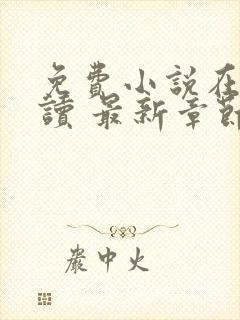 免費小說在
讀 最新章節
嚴中火